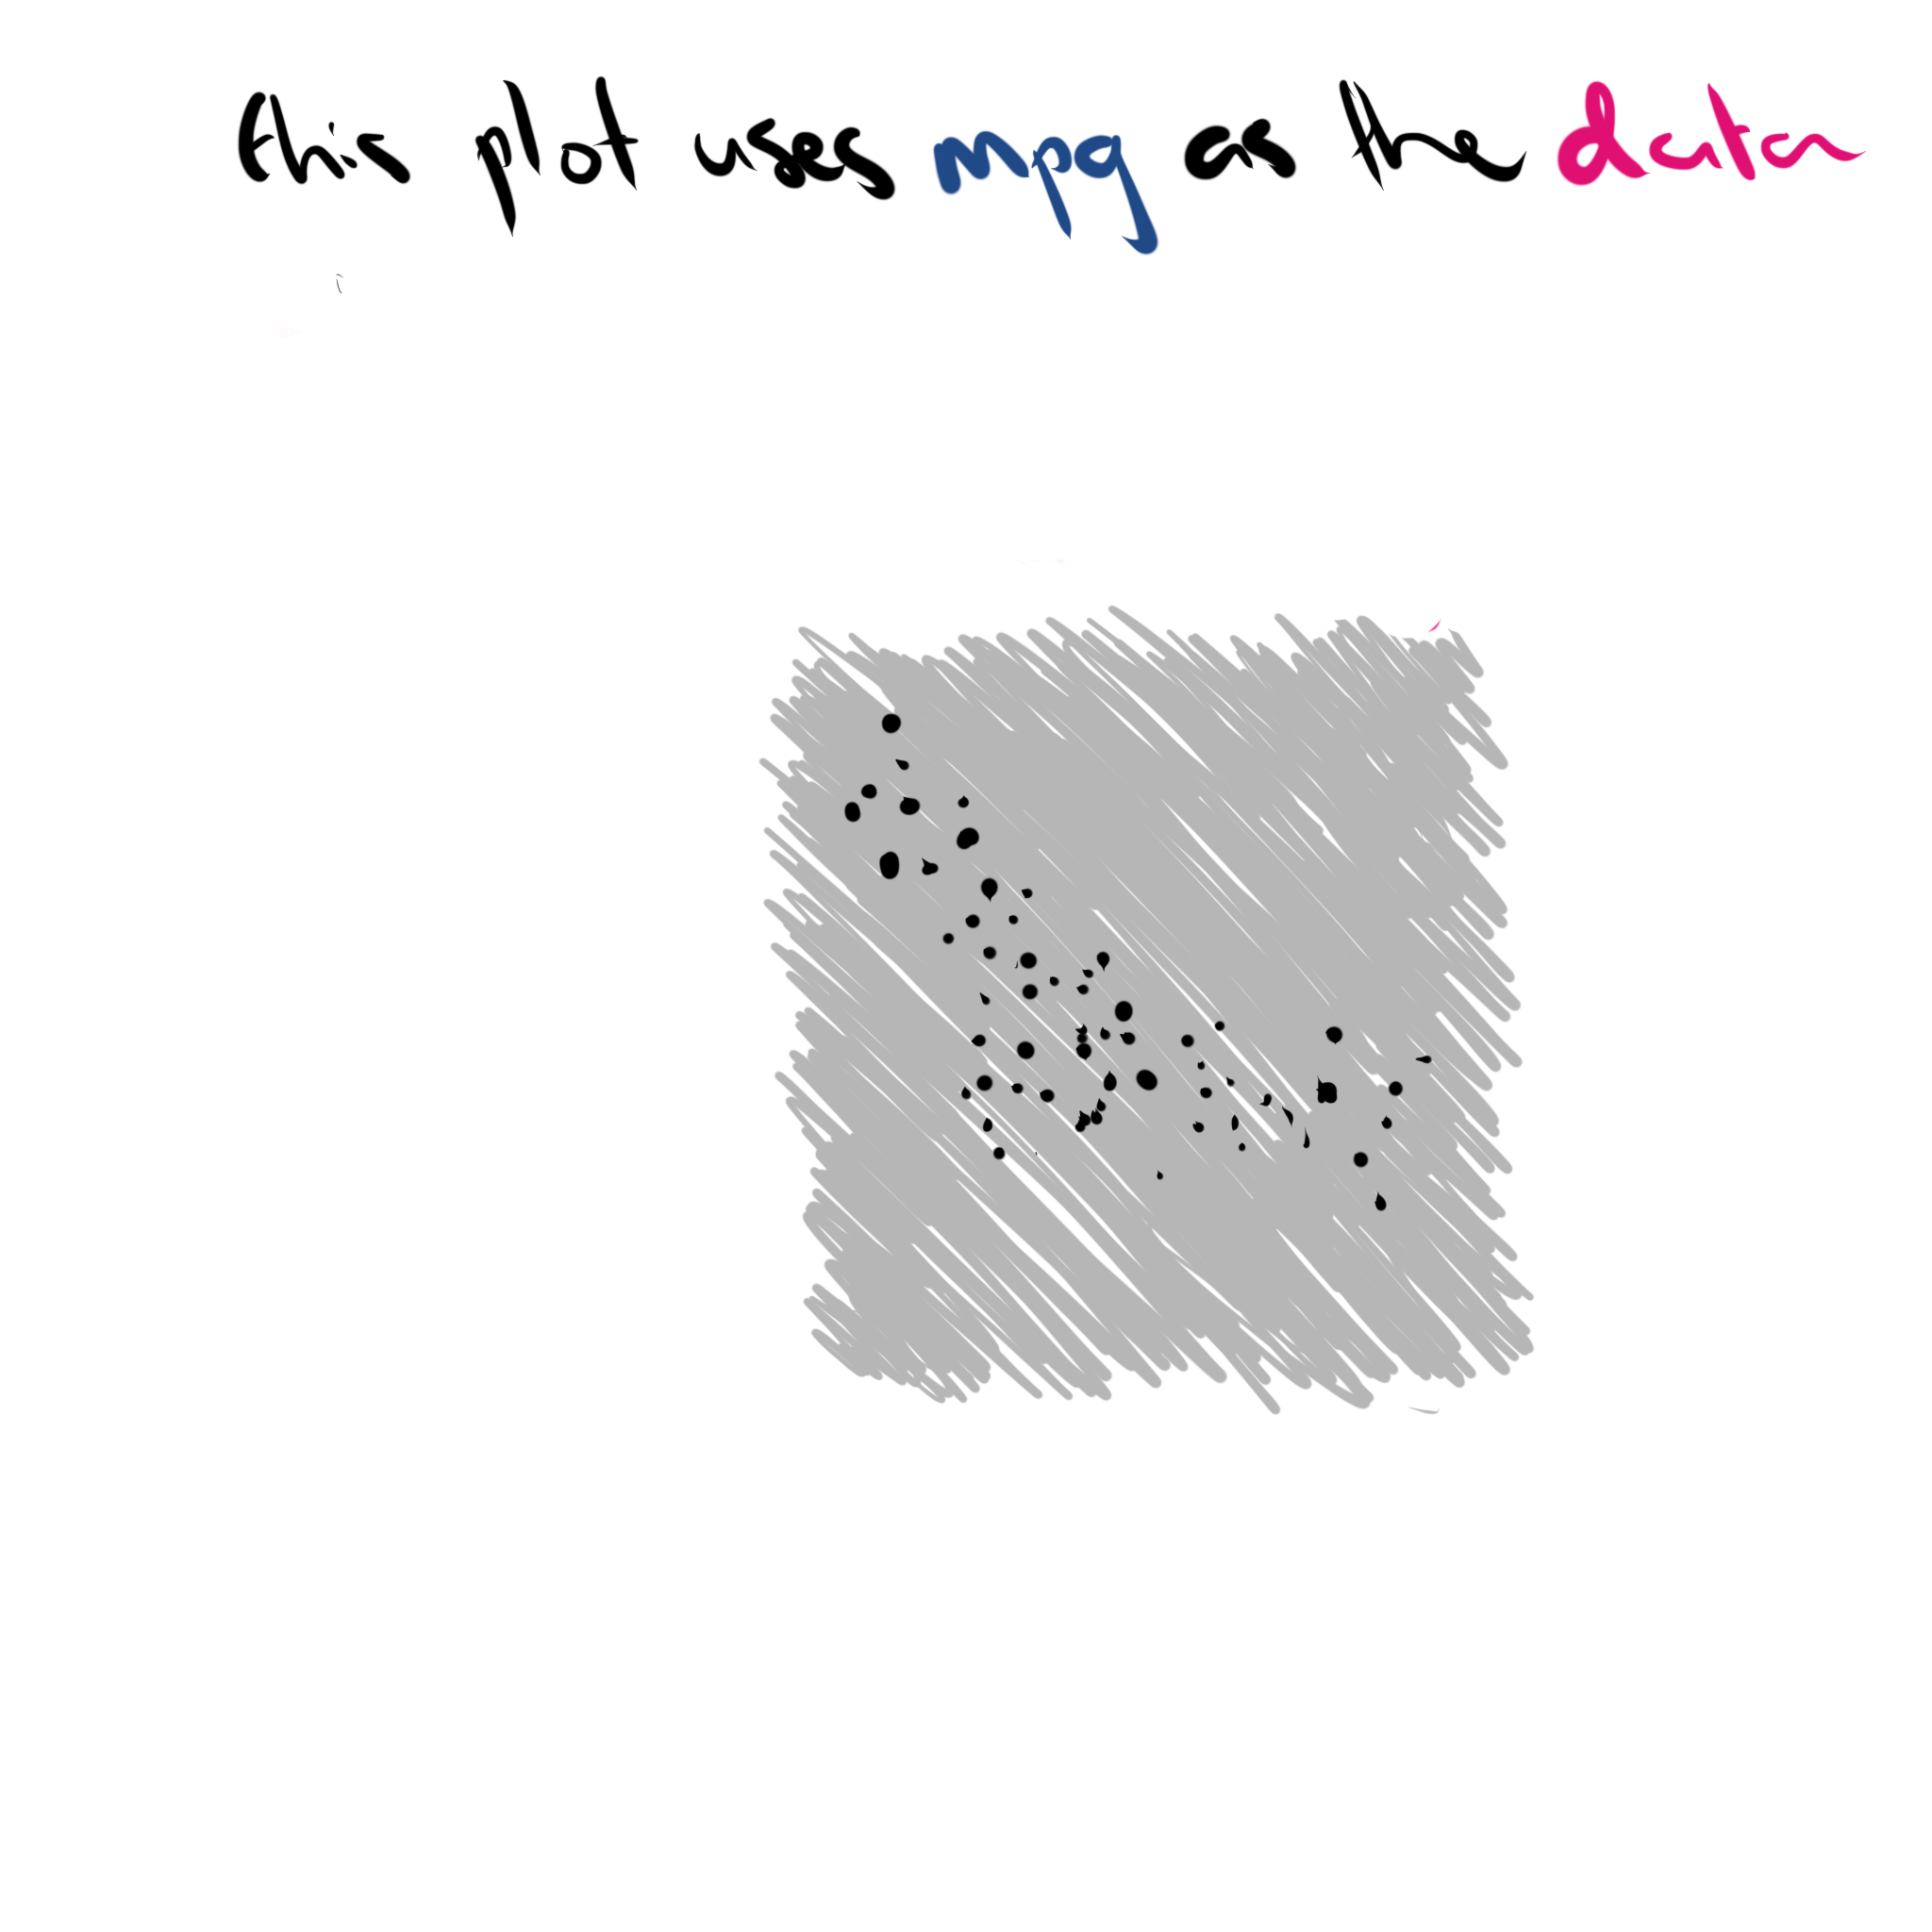 this plot uses mpg as the data